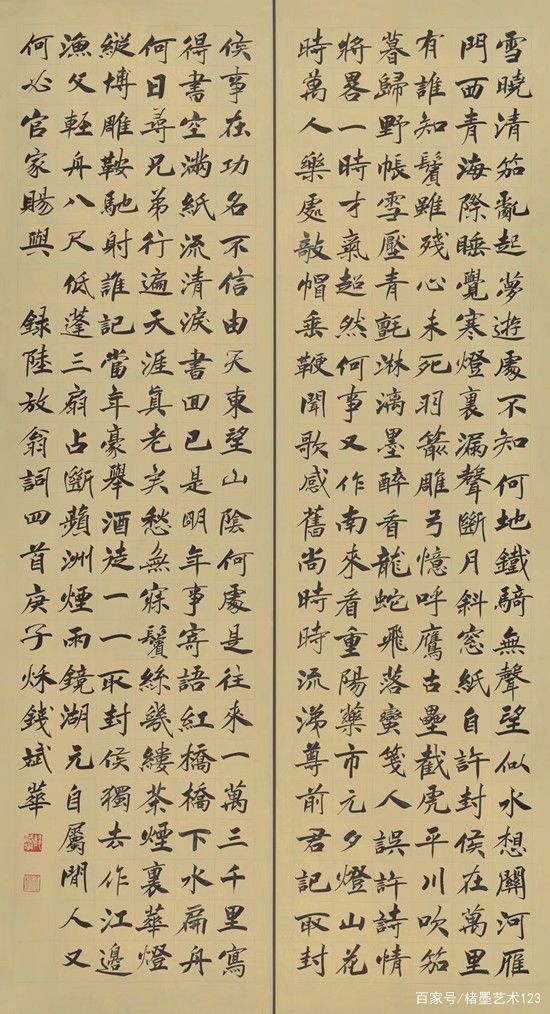 雪曉清笳亂起夢遊處不知何地鐵騎無聲望似水想關河雁
門西青海際睡覺寒燈裏漏聲斷月斜窗紙自許封侯在萬里
有誰知鬢雖殘心未死羽箭雕弓憶呼鷹古壘截虎平川吹笳
暮歸野帳雪壓青氈淋漓墨醉看龍蛇飛落蠻箋人誤許詩情
將畧一時才氣超然何事又作南來看重陽藥市元夕燈山花
時萬人樂處敧帽垂鞭聞歌感舊尚時時流涕尊前君記取封
侯事在功名不信由天東望山陰何處是往來一萬三千里寫
得書空滿紙流清淚書回已是明年事寄語紅橋橋下水扁舟
何日尋兄弟行遍天涯真老矣愁無寐鬢絲幾縷茶煙裏華燈
縱博雕鞍馳射誰記當年豪舉酒徒一一取封侯獨去作江邊
漁父輕舟八尺低蓬三扇占斷蘋洲煙雨鏡湖元自屬閒人又
何必官家賜與 錄陸放翁詞四首庚子秌錢斌華
百家号/楮墨艺术123